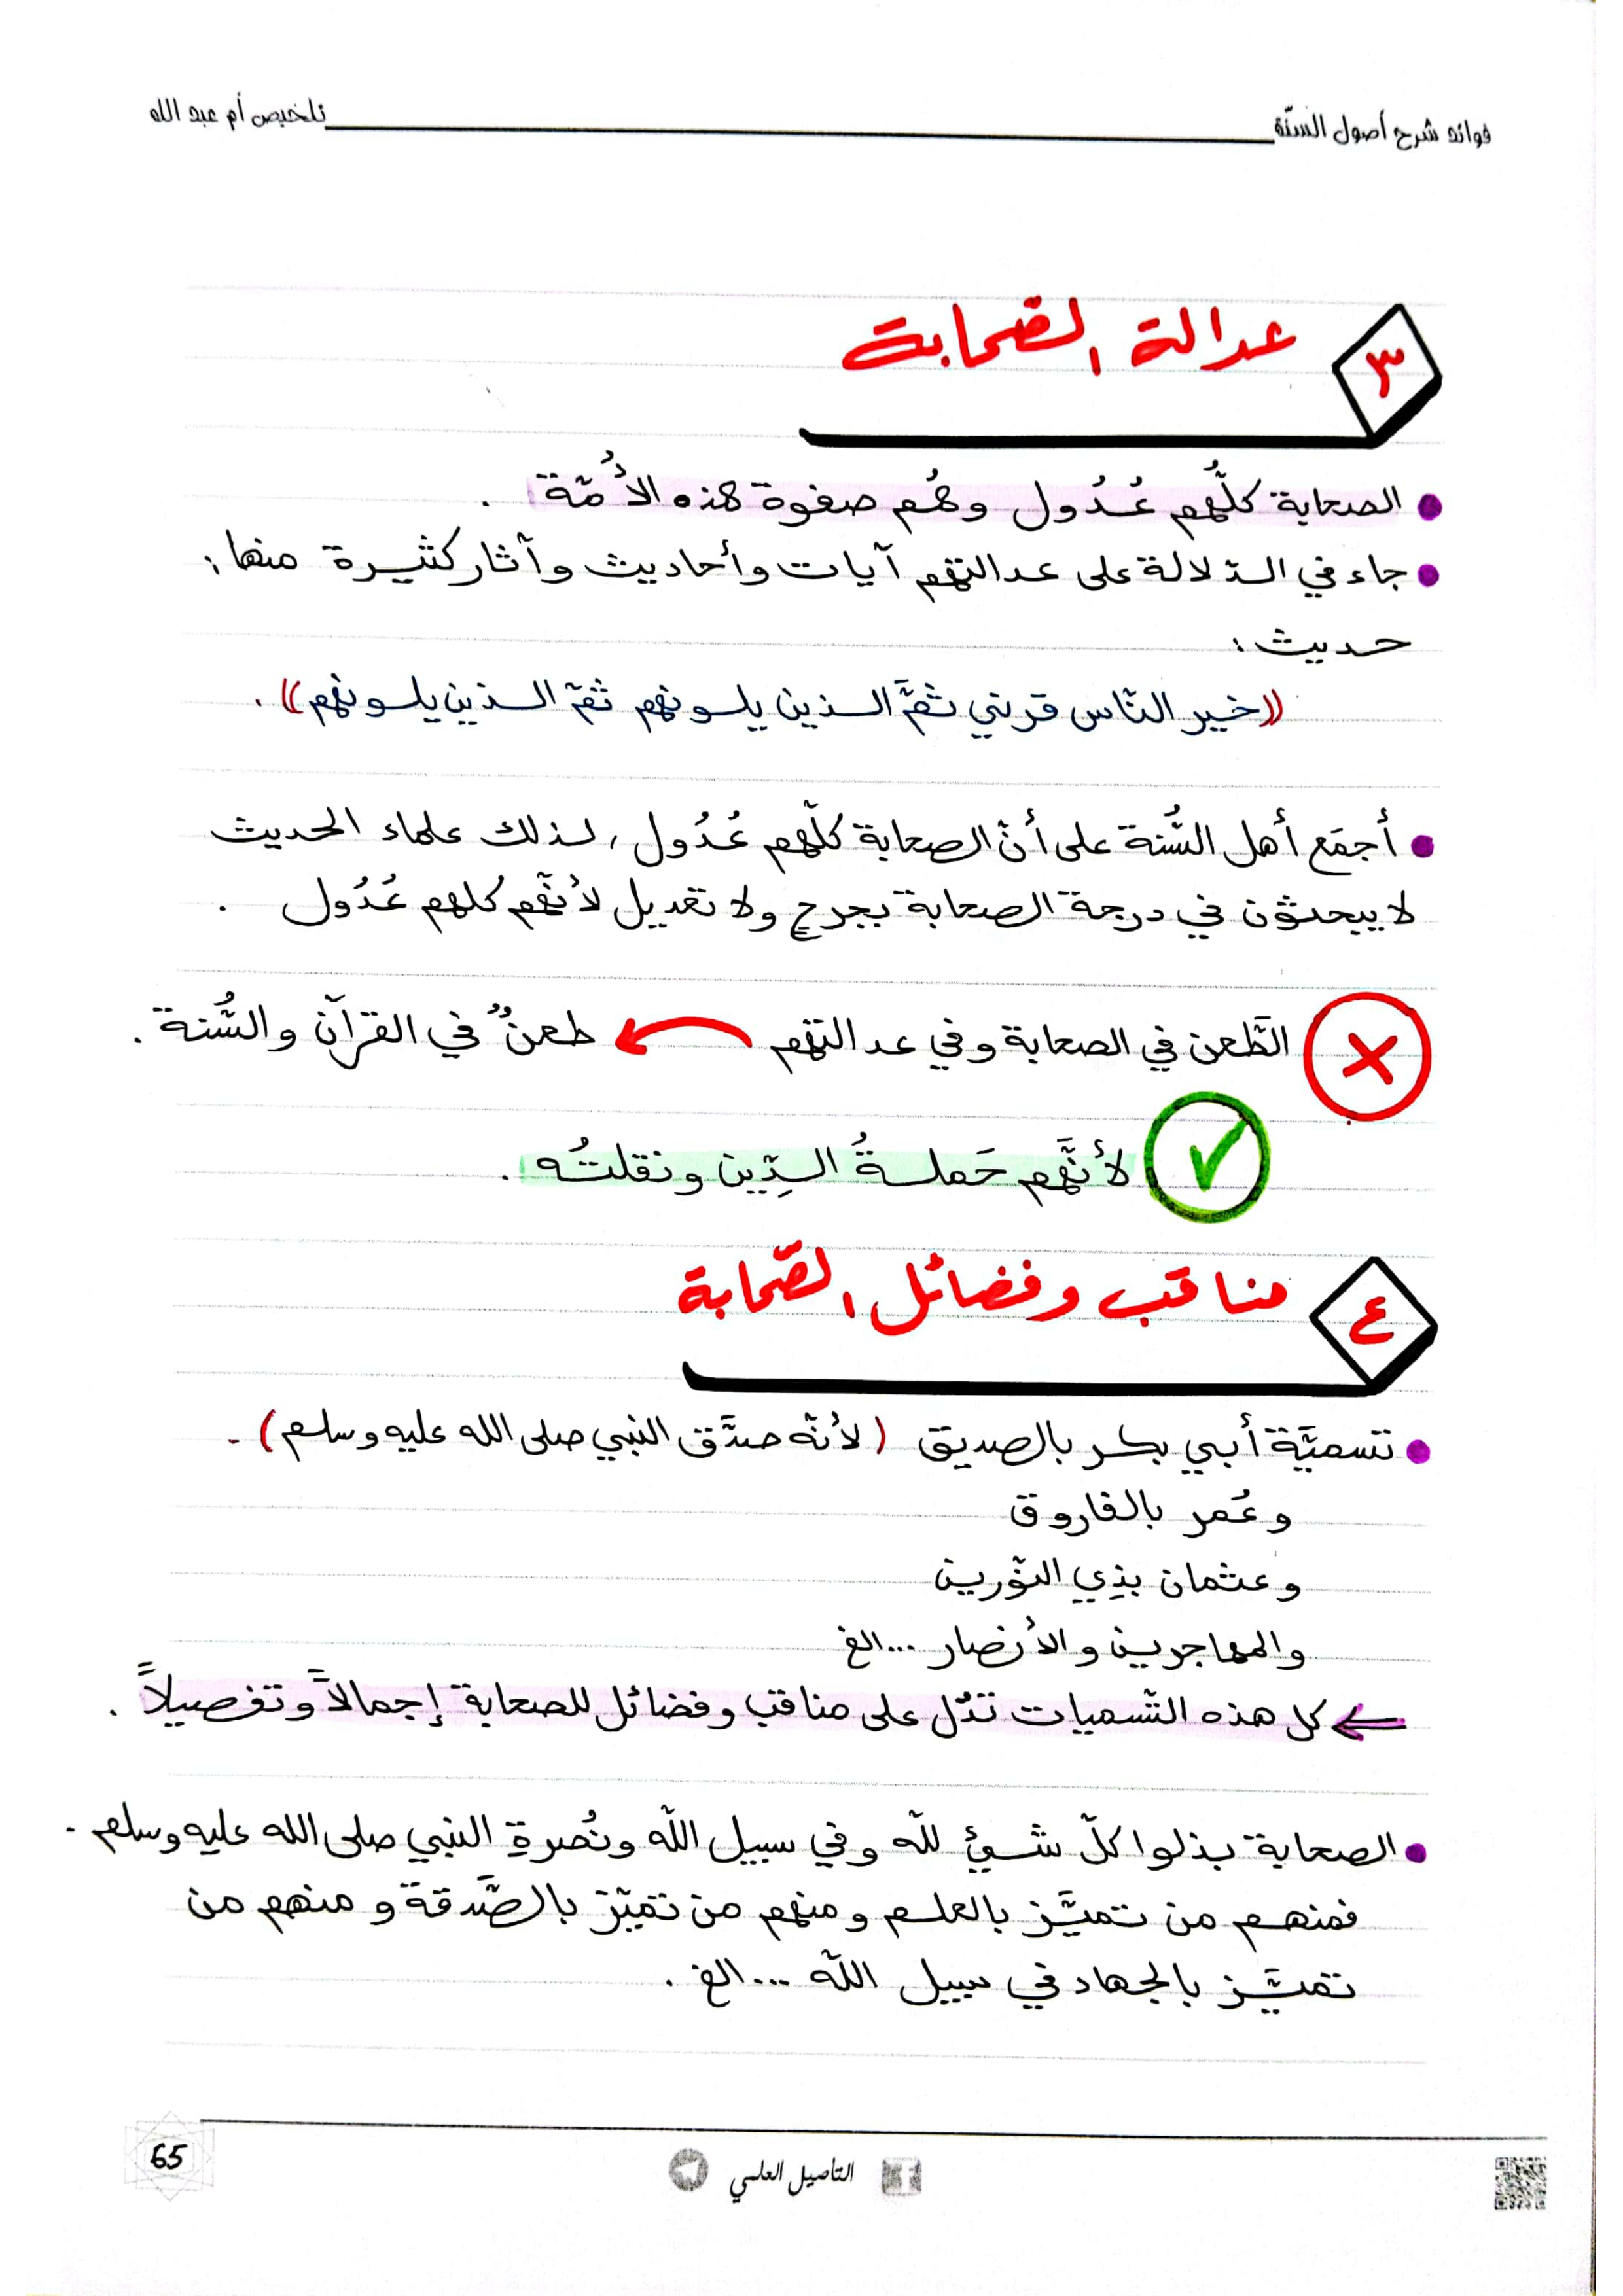 فوائد شرح أصول السنّة
تلخيص أم عبد الله
٣
عدالة الصّحابة
الصحابة كلُّهم عُدُول وهُم صفوة هذه الأُمّة .
جاء في الدّلالة على عدالتهم آيات وأحاديث وآثار كثيرة منها :
حديث :
((خير النّاس قرني ثمَّ الذين يلونهم ثمّ الذين يلونهم)) .
أجمَع أهل السُّنة على أنّ الصحابة كلّهم عُدُول , لذلك علماء الحديث
لا يبحثون في درجة الصحابة بجرحٍ ولا تعديل لأنّهم كلهم عُدُول .
الطَّعن في الصحابة وفي عدالتهم
طعنٌ في القرآن والسُّنة .
لأنَّهم حَملةُ الدِّين ونقلتُه .
٤
مناقب وفضائل الصّحابة
تسميَّة أبي بكر بالصديق (لأنّه صدَّق النبي صلى الله عليه وسلم) .
وعُمر بالفاروق
وعثمان بذِي النّورين
والمهاجرين والأنصار ...الخ
كل هذه التّسميات تدّل على مناقب وفضائل للصحابة إجمالاً وتفصيلاً .
الصحابة بذلوا كلّ شيئٍ للّه وفي سبيل اللّه ونُصرةِ النبي صلى الله عليه وسلم .
فمنهم من تميَّز بالعلم ومنهم من تميّز بالصَّدقة ومنهم من
تميَّز بالجهاد في سبيل اللّه ...الخ .
التأصيل العلمي
65